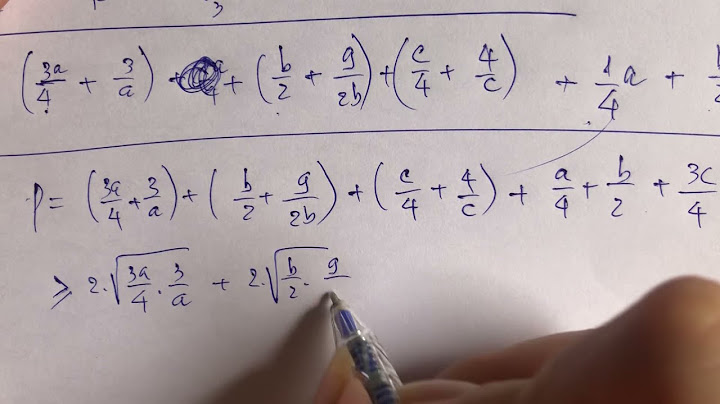 3
(3a/4 + 3/a) + (b/2 + 9/2b) + (c/4 + 4/c) + 1/4 a +
P = (3a/4 + 3/a) + (b/2 + 9/2b) + (c/4 + 4/c) + a/4 + b/2 + 3c/4
≥ 2.√(3a/4 . 3/a) + 2.√(b/2 . 9